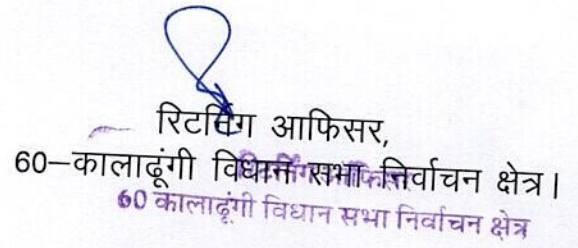 रिटर्निंग आफिसर,
60–कालाढूंगी विधान सभा निर्वाचन क्षेत्र।
60 कालाढूंगी विधान सभा निर्वाचन क्षेत्र